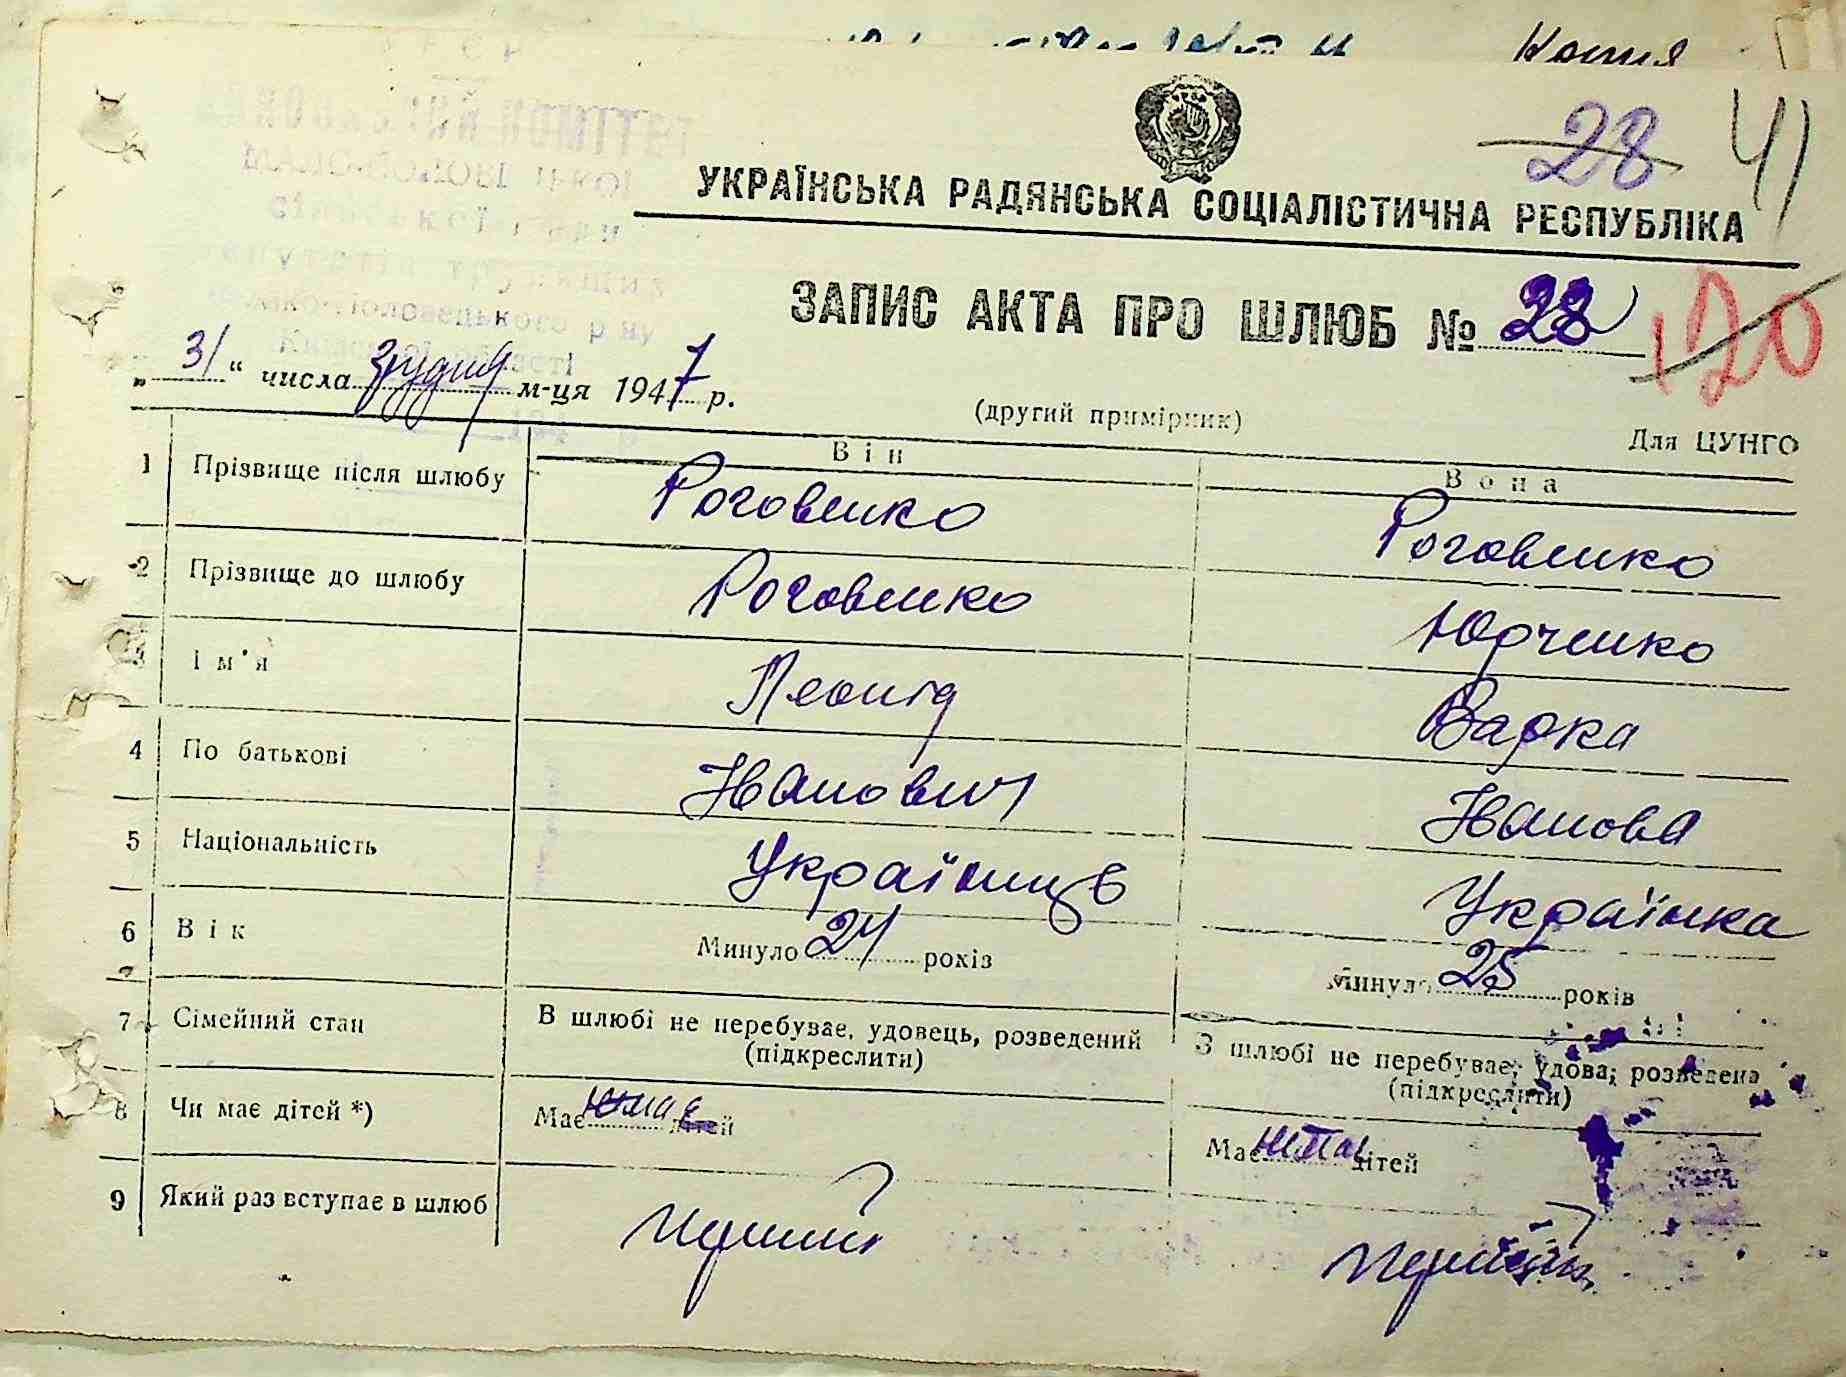 Копия
28 41
УКРАЇНСЬКА РАДЯНСЬКА СОЦІАЛІСТИЧНА РЕСПУБЛІКА
ЗАПИС АКТА ПРО ШЛЮБ № 28 120
„31“ числа грудня м-ця 1947 р.
(другий примірник)
Для ЦУНГО
Він Вона
1 Прізвище після шлюбу Роговенко Роговенко
2 Прізвище до шлюбу Роговенко Юрченко
3 Ім'я Леонід Варка
4 По батькові Іванович Іванова
5 Національність Українець Українка
6 Вік Минуло 24 років Минуло 25 років
7 Сімейний стан В шлюбі не перебуває, удовець, розведений В шлюбі не перебуває; удова; розведена
(підкреслити) (підкреслити)
8 Чи має дітей *) Має немає дітей Має дітей
9 Який раз вступає в шлюб перший перший